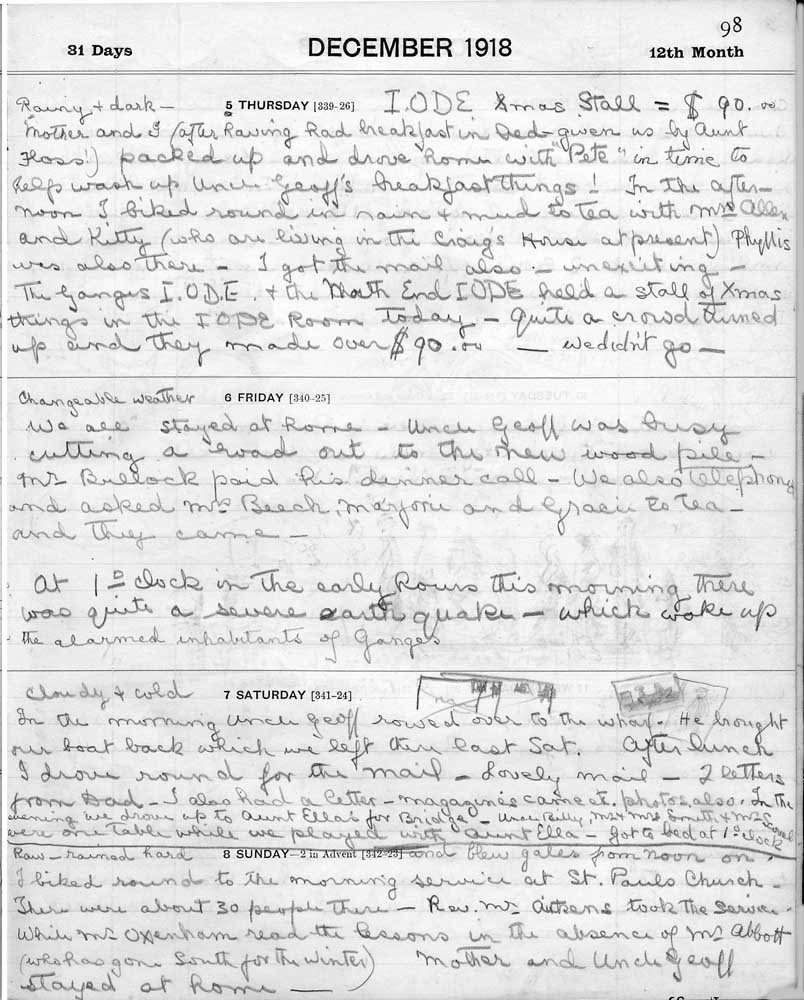 98
31 Days DECEMBER 1918 12th Month
Rainy + dark — 5 THURSDAY [339-26] I.ODE Xmas Stall = $90.00
Mother and I (after having had breakfast in bed - given us by Aunt
Floss!) packed up and drove home with "Pete" in time to
help wash up Uncle Geoff's breakfast things! In the after-
noon I biked round in rain + mud to tea with Mrs Allen
and Kitty (who are living in the Craig's House at present) Phyllis
was also there - I got the mail also - unexciting -
The Ganges I.O.D.E. + the North End IODE held a stall of Xmas
things in the IODE Room today - Quite a crowd turned
up and they made over $90.00 — we didn't go —
Changeable weather 6 FRIDAY [340-25]
We all stayed at home - Uncle Geoff was busy
cutting a road out to the new wood pile -
Mr Bullock paid his dinner call - We also telephoned
and asked Mrs Beech, Marjorie and Gracie to tea -
and they came -
At 1 o'clock in the early hours this morning there
was quite a severe earth quake - which woke up
the alarmed inhabitants of Ganges
Cloudy + cold 7 SATURDAY [341-24]
In the morning Uncle Geoff rowed over to the wharf. He brought
our boat back which we left there last Sat. After lunch
I drove round for the mail - Lovely mail - 2 letters
from Dad - I also had a letter - magazines came etc. photos, also. In the
evening we drove up to Aunt Ella's for Bridge - Uncle Billy, Mr + Mrs Smith, + Mr
were one table while we played with Aunt Ella - got to bed at 1 o'clock
Raw - rained hard 8 SUNDAY—2 in Advent [342-23] and blew gales from noon on.
I biked round to the morning service at St. Pauls Church -
There were about 30 people there - Rev. Mr Aitkens took the service -
While Mr Oxenham read the lessons in the absence of Mr Abbott
(who has gone South for the winter) Mother and Uncle Geoff
stayed at home —